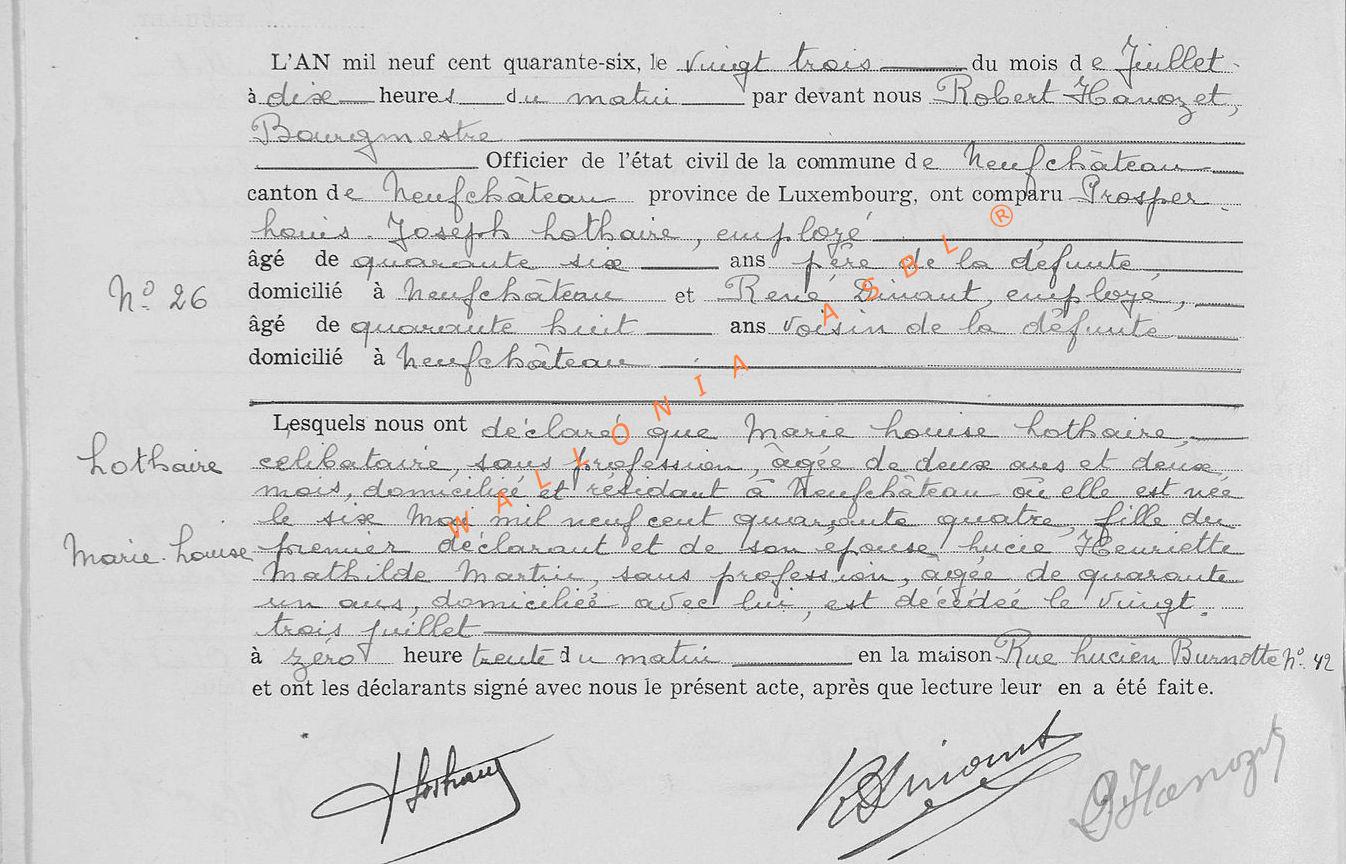 L'AN mil neuf cent quarante-six, le vingt trois du mois de Juillet
à dix heures du matin par devant nous Robert Hanozet,
Bourgmestre
Officier de l'état civil de la commune de Neufchâteau
canton de Neufchâteau province de Luxembourg, ont comparu Prosper
Louis Joseph Lothaire, employé
âgé de quarante six ans père de la défunte
N° 26 domicilié à Neufchâteau et René Dinant, employé,
âgé de quarante huit ans voisin de la défunte
domicilié à Neufchâteau
Lesquels nous ont déclaré que Marie Louise Lothaire,
Lothaire célibataire, sans profession, âgée de deux ans et deux
mois, domiciliée et résidant à Neufchâteau où elle est née
le six Mai mil neuf cent quarante quatre, fille du
Marie-Louise premier déclarant et de son épouse Lucie Henriette
Mathilde Martin, sans profession, âgée de quarante
un ans, domiciliée avec lui, est décédée le vingt
trois juillet
à zéro heure trente du matin en la maison Rue Lucien Burnotte N° 42
et ont les déclarants signé avec nous le présent acte, après que lecture leur en a été faite.
Lothaire RDinant RHanozet
WALLONIA ASBL ®